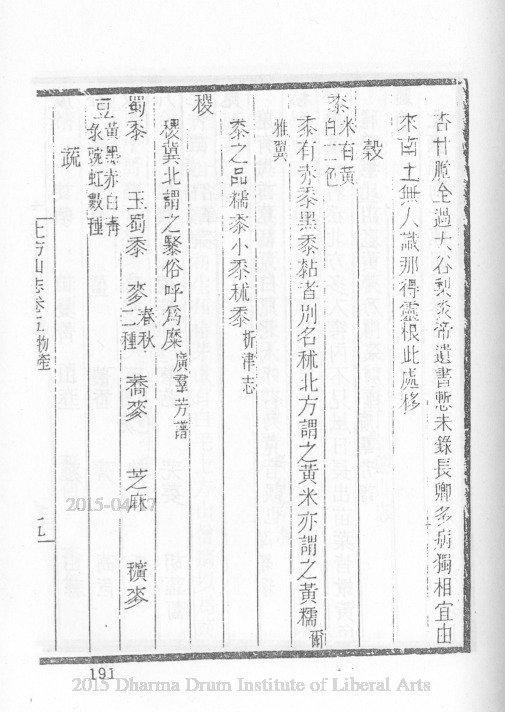 杏甘脆全過大谷梨炎帝遺書慙未錄長卿多病獨相宜由
來南土無人識那得靈根此處移
穀
黍米有黃
白二色
黍有赤黍黑黍黏者別名秫北方謂之黃米亦謂之黃糯爾
雅翼
黍之品糯黍小黍秫黍析津志
稷
稷冀北謂之穄俗呼爲糜廣羣芳譜
蜀黍 玉蜀黍 麥春秋二種 蕎麥 芝麻 穬麥
豆黃黑赤白靑
豕豌虹數種
蔬
上方山志卷五物產
2015-04-17
191
2015 Dharma Drum Institute of Liberal Arts